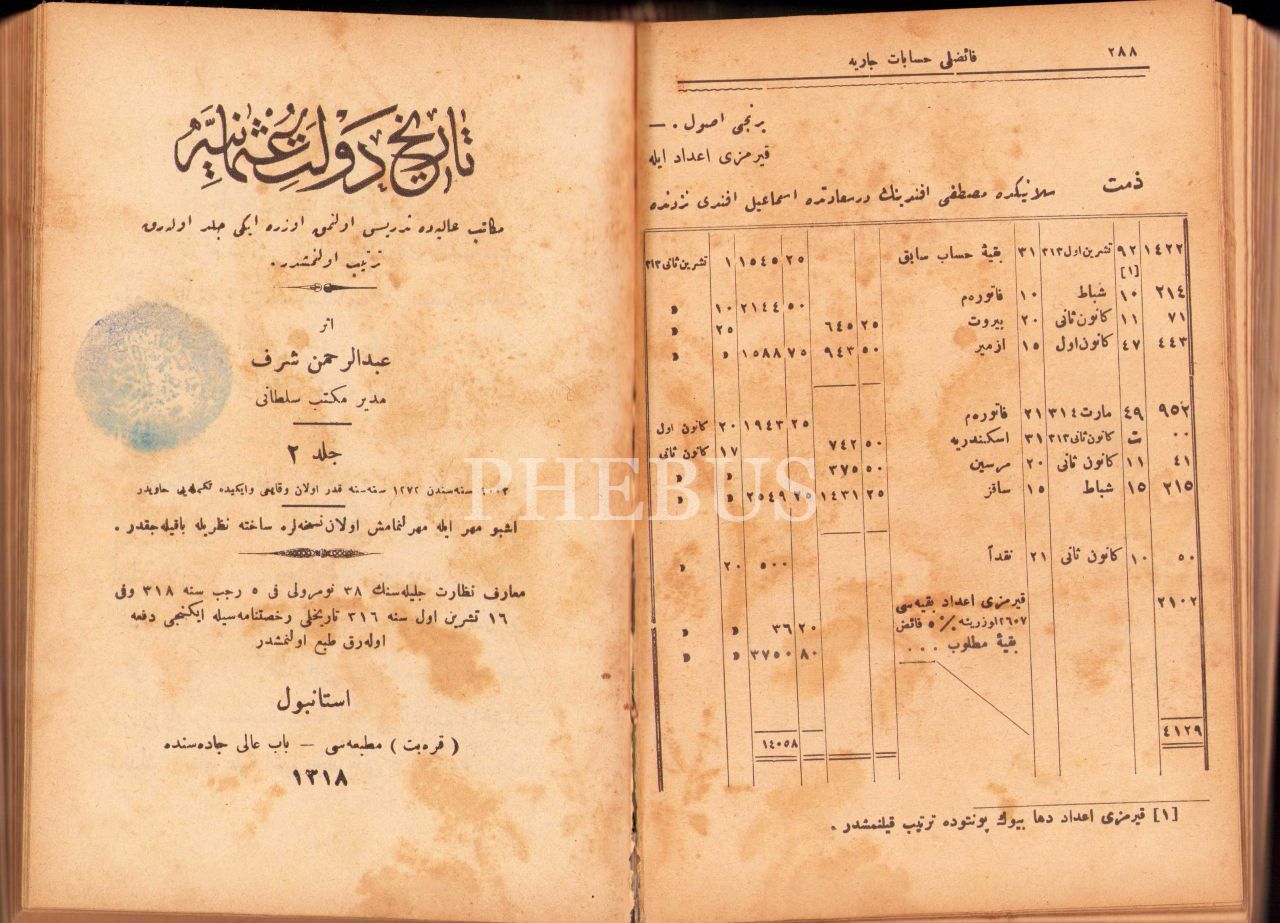 ٢٨٨
فائضلى حسابات جاريه
برنجى اصول . —
قيرمزى اعداد ايله
ذمت
سلانيكده مصطفى افندينك درسعادتده اسماعيل افندى نزدنده
١٤٢٢ ٩٢ تشرين اول ٣١٣ ٣١ بقيۀ حساب سابق ٢٥ ١٥٤٥ ١ تشرين ثانى ٣١٣
[١]
٢١٤ ١٠ شباط ١٠ فاتوره‌م ٥٠ ٢١٤٤ ١٠ »
٧١ ١١ كانون ثانى ٢٠ بيروت ٢٥ ٦٤٥ ٢٥ »
٤٤٣ ٤٧ كانون اول ١٥ ازمير ٥٠ ٩٤٣ ٧٥ ١٥٨٨ » »
٩٥٢ ٤٩ مارت ٣١٤ ٢١ فاتوره‌م ٢٥ ١٩٤٣ ٢٠ كانون اول
٠٠ ت كانون ثانى ٣١٣ ٣١ اسكندريه ٥٠ ٧٤٢ ١٧ كانون ثانى
٤١ ١١ كانون ثانى ٢٠ مرسين ٥٠ ٣٧٥ » »
٢١٥ ١٥ شباط ١٥ ساقز ٢٥ ١٤٣١ ٢٥ ٢٥٤٩ » »
٥٠ ١٠ كانون ثانى ٢١ نقداً ٥٠٠ ٢٠ »
٢١٠٢ قيرمزى اعداد بقيه‌سى
٢٦٠٧ اوزرينه ٥٪ فائض ٢٠ ٣٦ » »
بقيۀ مطلوب . . . ٨٠ ٣٧٥٠ » »
٤١٢٩ ١٤٠٥٨
[١] قيرمزى اعداد دها بيوك پونتوده ترتيب قيلنمشدر .
تاريخ دولت عثمانيه
مكاتب عاليه‌ده تدريس اولنمق اوزره ايكى جلد اوله‌رق
ترتيب اولنمشدر .
اثر
عبدالرحمن شرف
مدير مكتب سلطانى
جلد ٢
سنه‌سندن ١٢٧٢ سنه‌سنه قدر اولان وقايعى وايكيده تكمله‌يى حاويدر
اشبو مهر ايله مهرلنمامش اولان نسخه‌لره ساخته نظريله باقيله‌جقدر .
معارف نظارت جليله‌سنك ٣٨ نومرولى فى ٥ رجب سنه ٣١٨ وفى
١٦ تشرين اول سنه ٣١٦ تاريخلى رخصتنامه‌سيله ايكنجى دفعه
اوله‌رق طبع اولنمشدر
استانبول
( قره‌بت ) مطبعه‌سى — باب عالى جاده‌سنده
١٣١٨
PHEBUS